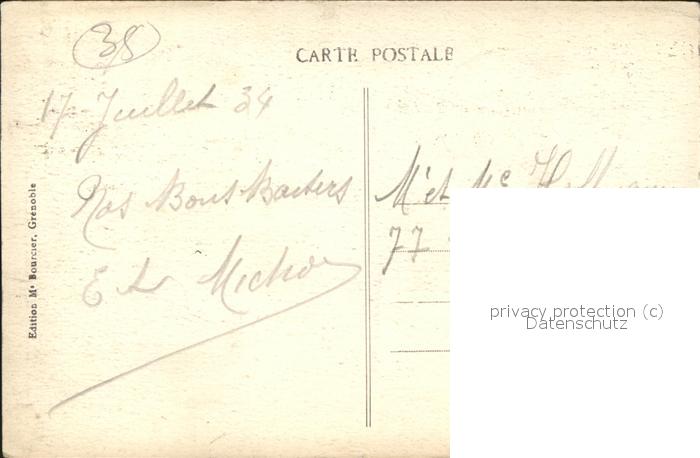 38
CARTE POSTALE
17 Juillet 34
Nos Bons Baisers
E
Edition Mᵉ Bourcier, Grenoble
Mʳ et Mᵉ
77
privacy protection (c)
Datenschutz